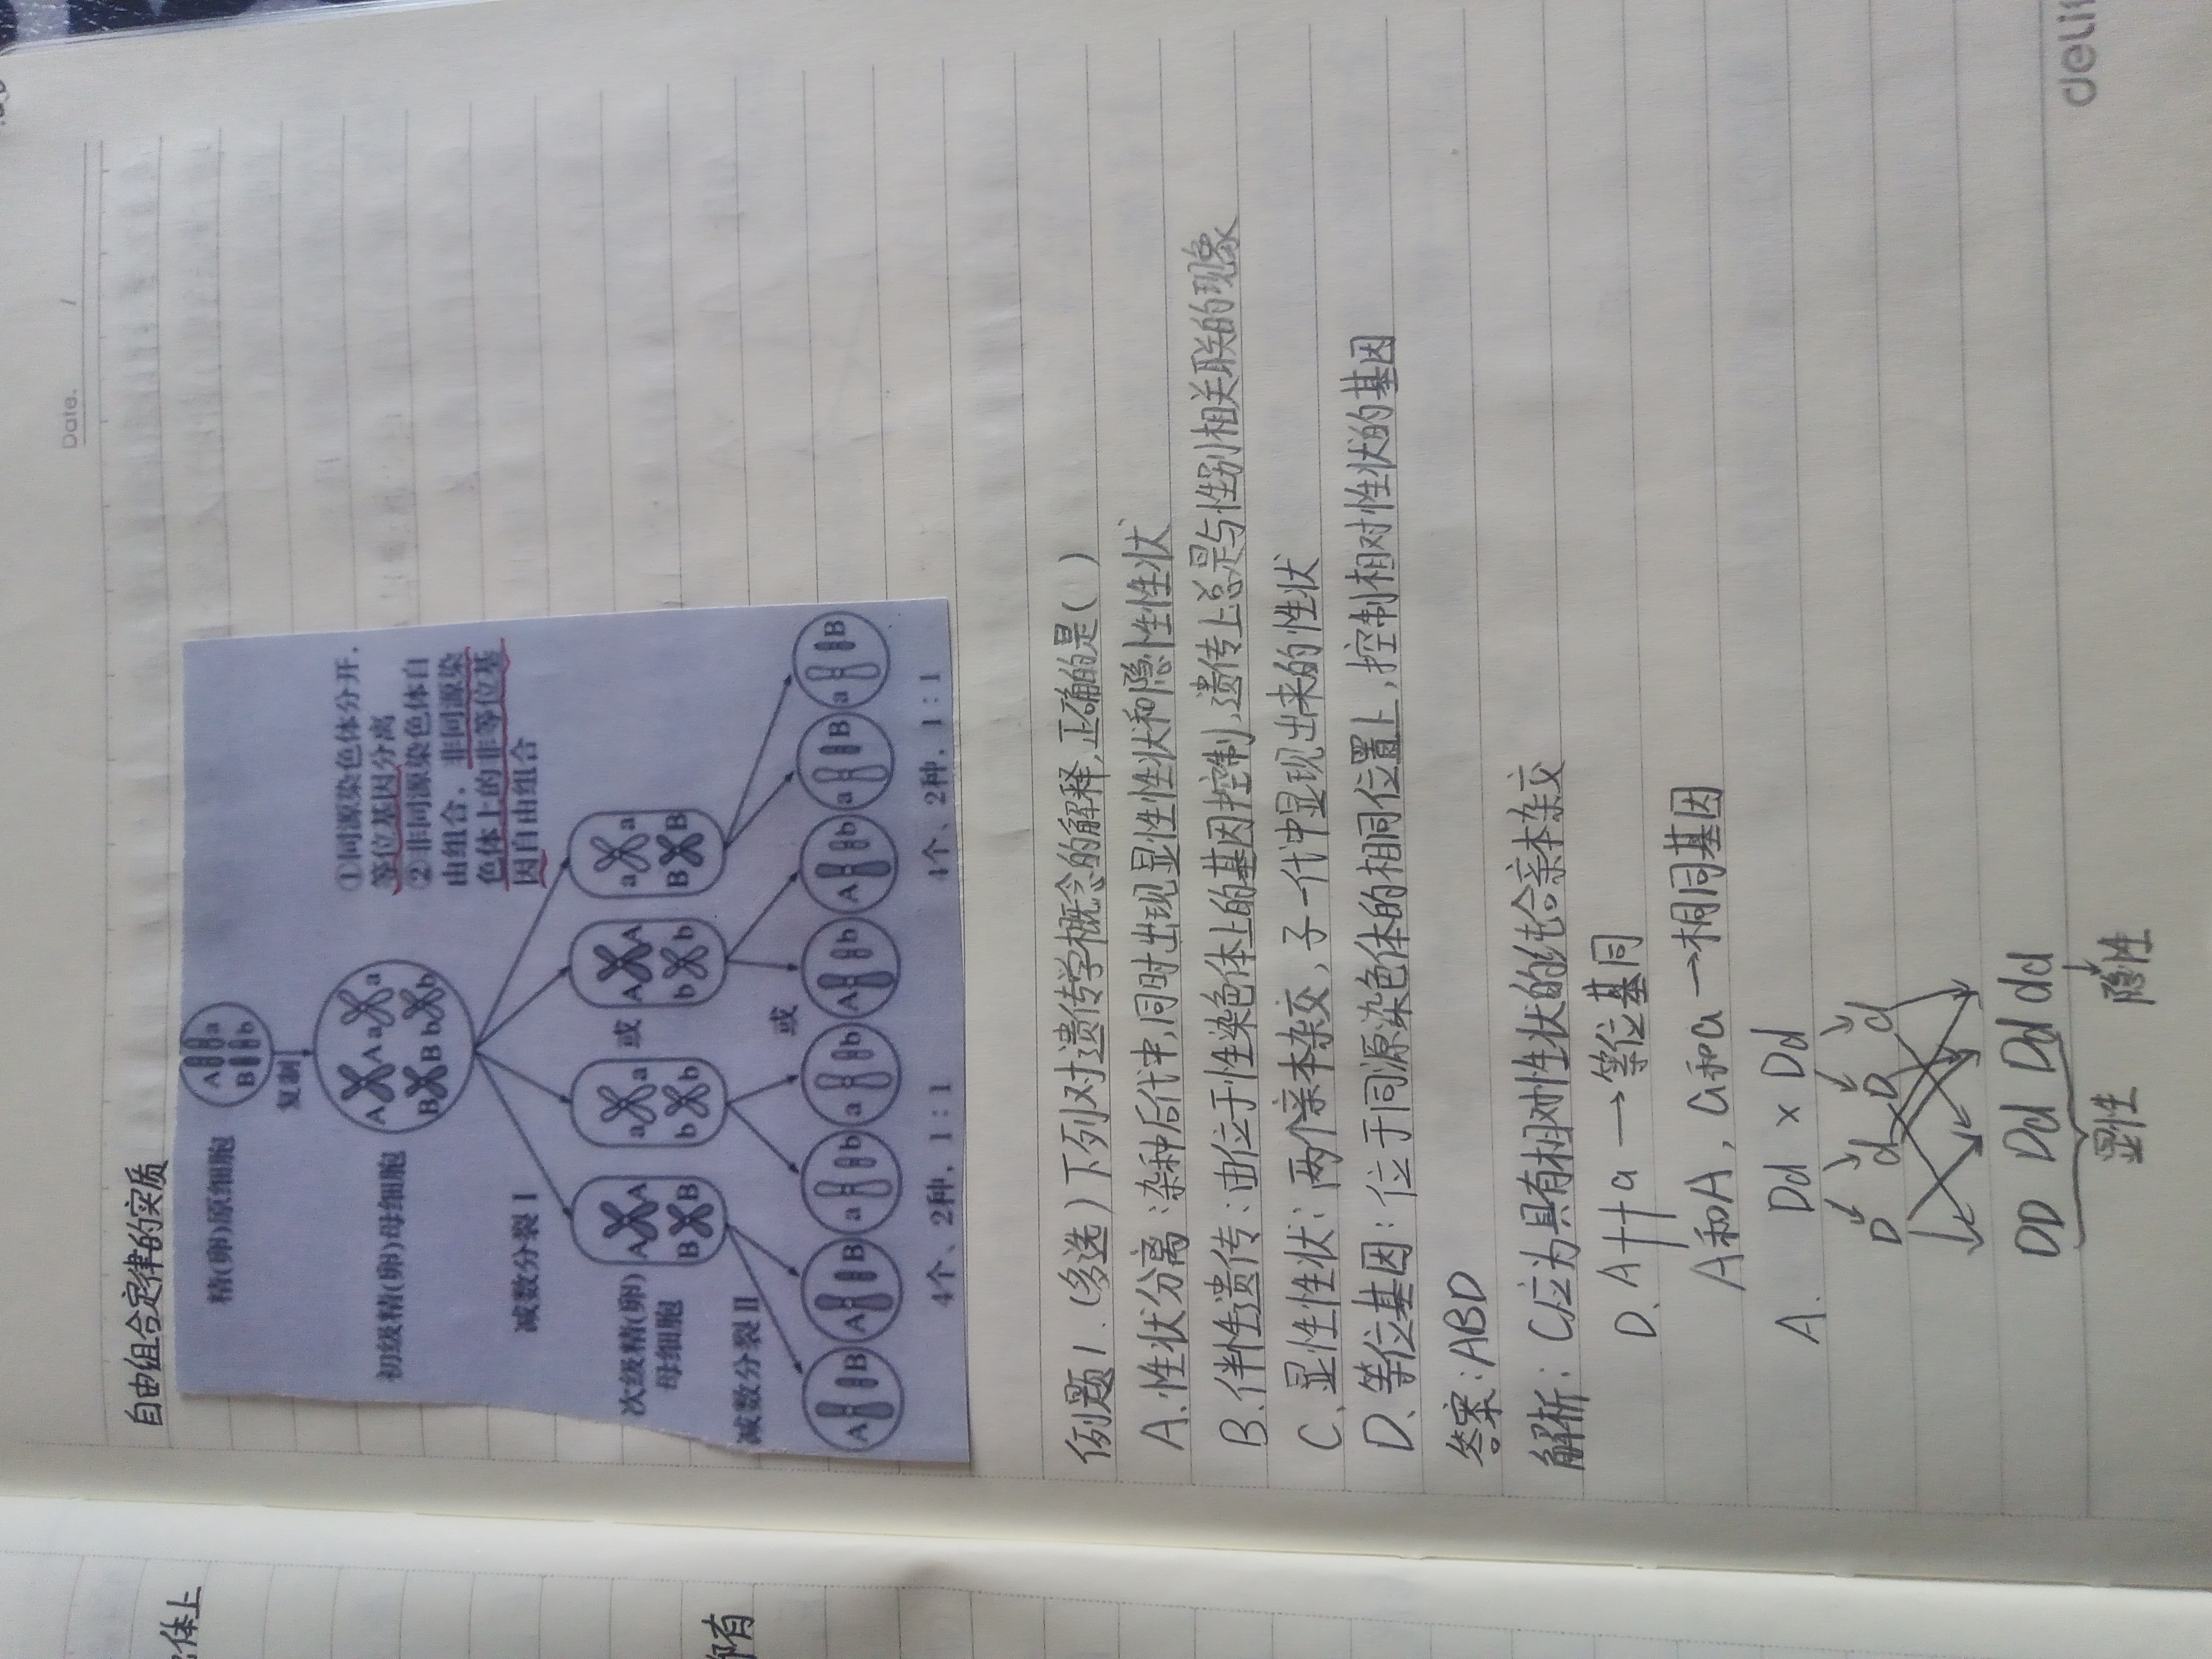 Date. /
自由组合定律的实质
精(卵)原细胞
A a
B b
复制
初级精(卵)母细胞
A A a a
B B b b
①同源染色体分开，
等位基因分离
②非同源染色体自
由组合，非同源染
色体上的非等位基
因自由组合
减数分裂 I
次级精(卵)
母细胞
A A a a 或 A A a a
B B b b b b B B
减数分裂 II
或
A B A B a b a b A b A b a B a B
4个、2种，1：1 4个、2种，1：1
例题1.(多选)下列对遗传学概念的解释,正确的是( )
A.性状分离：杂种后代中,同时出现显性性状和隐性性状
B.伴性遗传：由位于性染色体上的基因控制,遗传上总是与性别相关联的现象
C、显性性状：两个亲本杂交，子一代中显现出来的性状
D、等位基因：位于同源染色体的相同位置上,控制相对性状的基因
答案：ABD
解析：C应为具有相对性状的纯合亲本杂交
D、A a →等位基同
A和A，a和a→相同基因
A、 Dd × Dd
D d D d
DD Dd Dd dd
显性 隐性
deli
体上
有